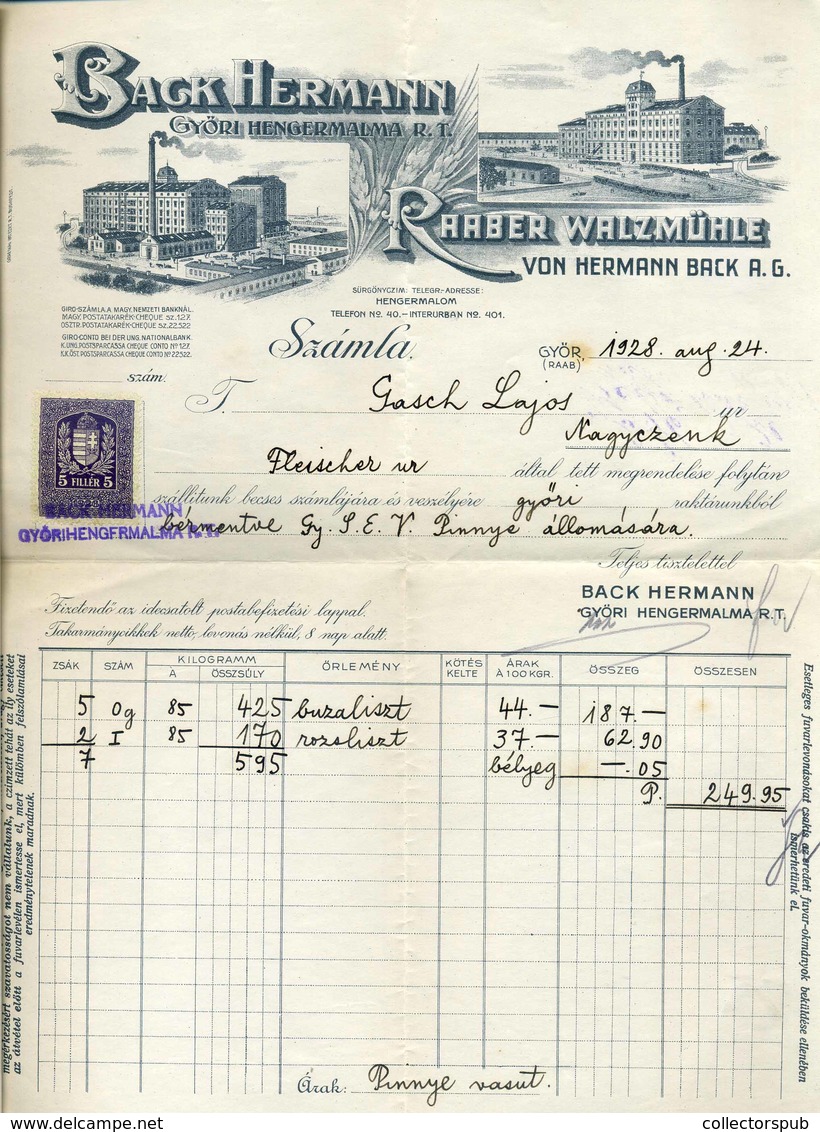 BACK HERMANN
GYŐRI HENGERMALMA R. T.
RAABER WALZMÜHLE
VON HERMANN BACK A. G.
SÜRGÖNYCZIM: TELEGR.-ADRESSE:
HENGERMALOM
TELEFON No. 40.—INTERURBAN No. 401.
GIRO-SZÁMLA A MAGY. NEMZETI BANKNÁL.
MAGY. POSTATAKARÉK-CHEQUE SZ. 127.
OSZTR. POSTATAKARÉK-CHEQUE SZ. 22.522
GIRO-CONTO BEI DER UNG. NATIONALBANK
K. UNG. POSTSPARCASSA CHEQUE CONTO No 127.
K.K. ÖST. POSTSPARCASSA CHEQUE CONTO No 22.522.
Számla.
GYŐR, 1928. aug. 24.
(RAAB)
szám.
T. Gasch Lajos úr
Nagyczenk
Fleischer ur által tett megrendelése folytán
szállítunk becses számlájára és veszélyére győri raktárunkból
bérmentve Gy. S. E. V. Pinnye állomására.
5 FILLÉR 5
BACK HERMANN
GYŐRI HENGERMALMA R.T.
Teljes tisztelettel
BACK HERMANN
GYŐRI HENGERMALMA R.T.
Fizetendő az idecsatolt postabefizetési lappal.
Takarmánycikkek netto, levonás nélkül, 8 nap alatt.
ZSÁK SZÁM KILOGRAMM ŐRLEMÉNY KÖTÉS KELTE ÁRAK À 100 KGR. ÖSSZEG ÖSSZESEN
À ÖSSZSÚLY
5 0g 85 425 buzaliszt 44.— 187.—
2 I 85 170 rozsliszt 37.— 62.90
7 595 bélyeg —.05
P. 249.95
Árak: Pinnye vasut.
megérkezésért szavatosságot nem vállalunk, a czimzett tehát az ily eseteket
az átvétel előtt a fuvarlevélen ismertesse el, mert különben felszólamlásai
eredménytelenek maradnak.
Esetleges fuvarlevonásokat csakis az eredeti fuvar-okmányok beküldése ellenében
ismerhetünk el.
collectorspub